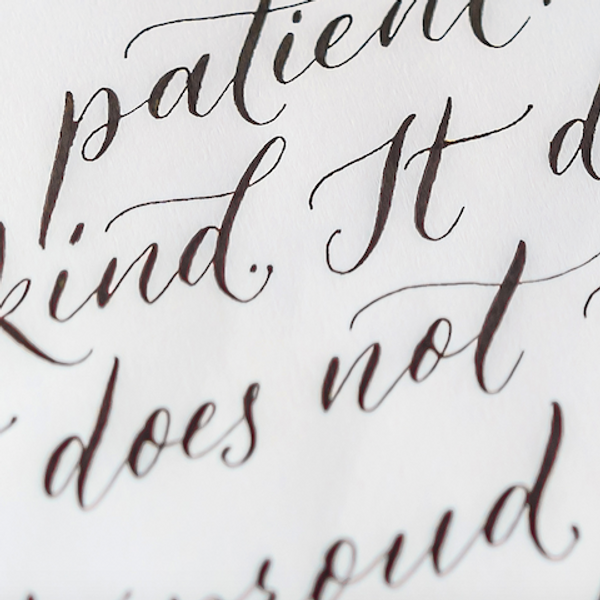 patient.
kind. It
does not
proud